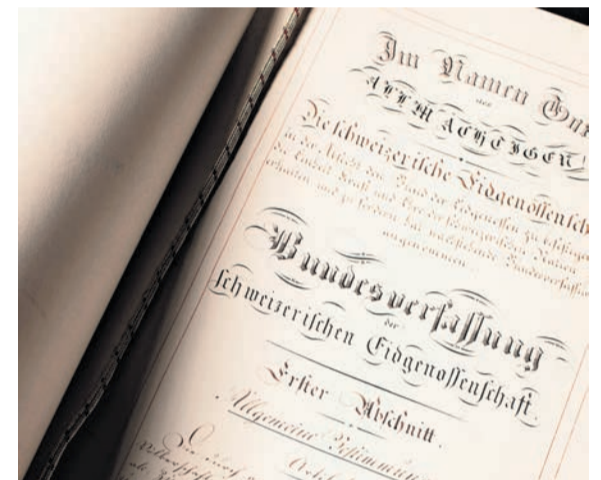 Im Namen Gott
des
ALLMÄCHTIGEN!
Die schweizerische Eidgenossensch
in der Absicht, den Bund der Eidgenossen zu befestigen
die Einheit, Kraft und Ehre der schweizerischen Nation
erhalten und zu fördern, hat nachstehende Bundesverfassu
angenommen.
Bundesverfassung
der
schweizerischen Eidgenossenschaft.
Erster Abschnitt.
Allgemeine Bestimmun
Die durch